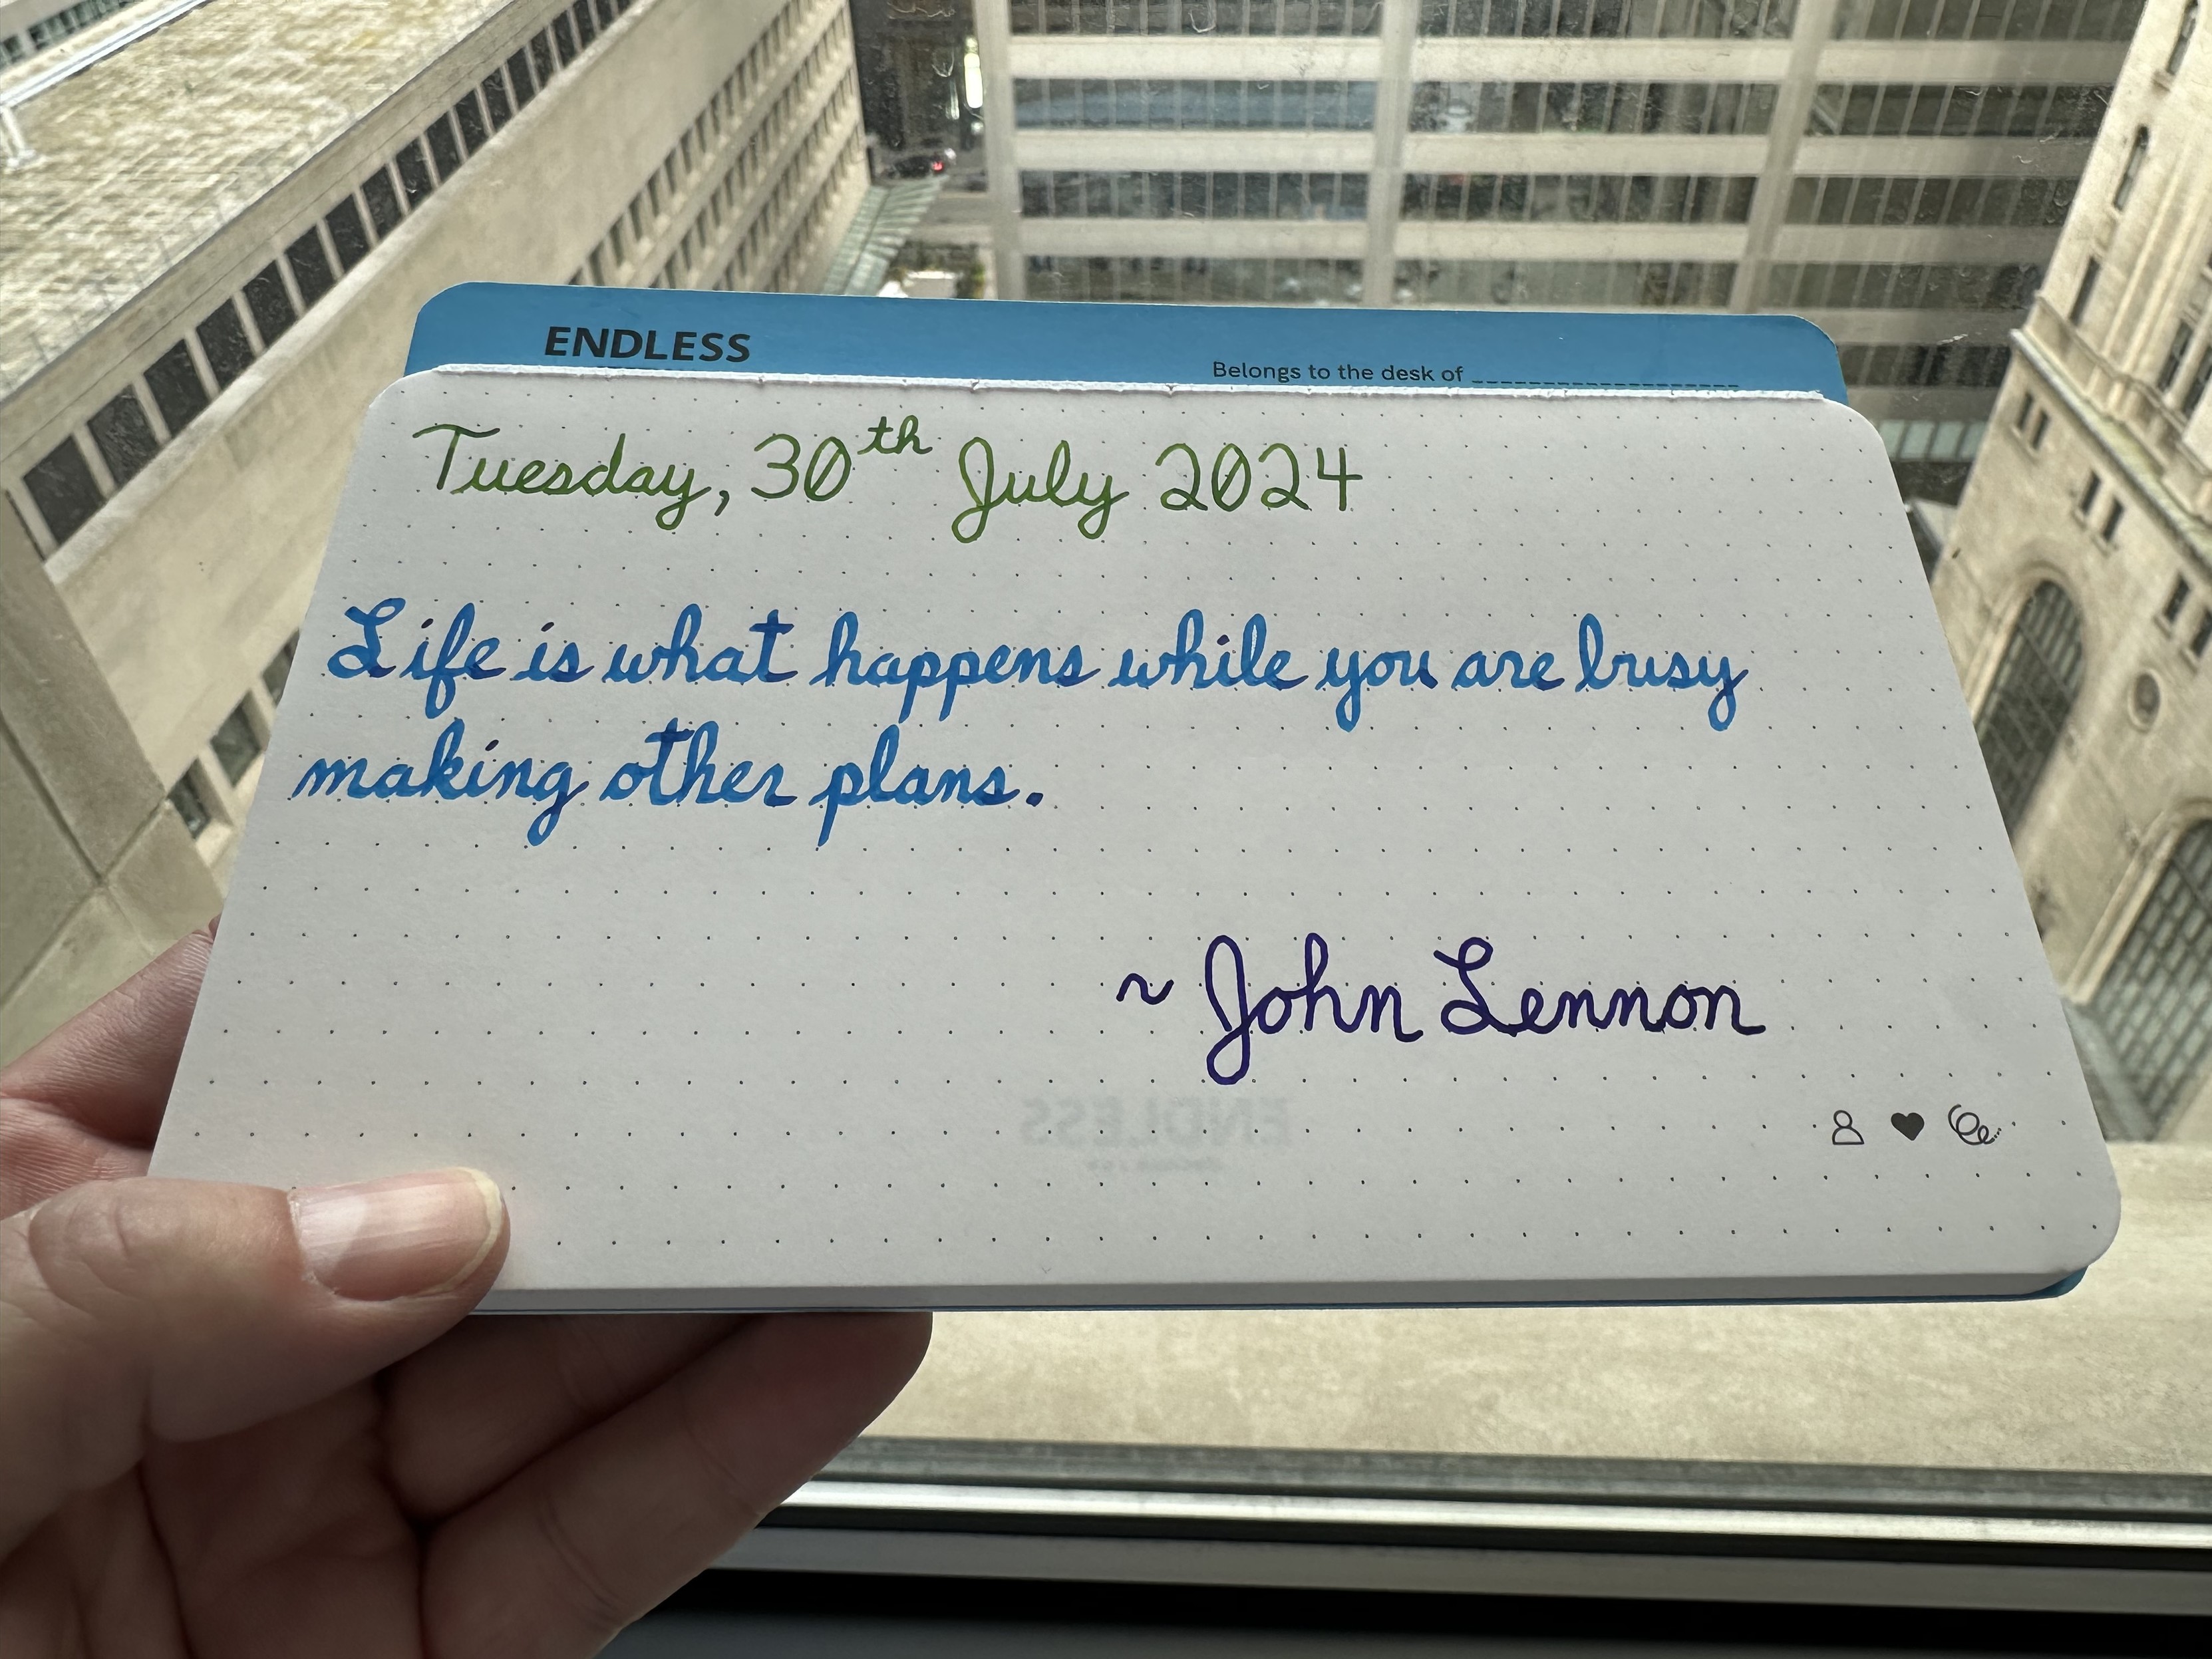 ENDLESS
Belongs to the desk of ____________________
Tuesday, 30th July 2024
Life is what happens while you are busy
making other plans.
~ John Lennon
ENDLESS